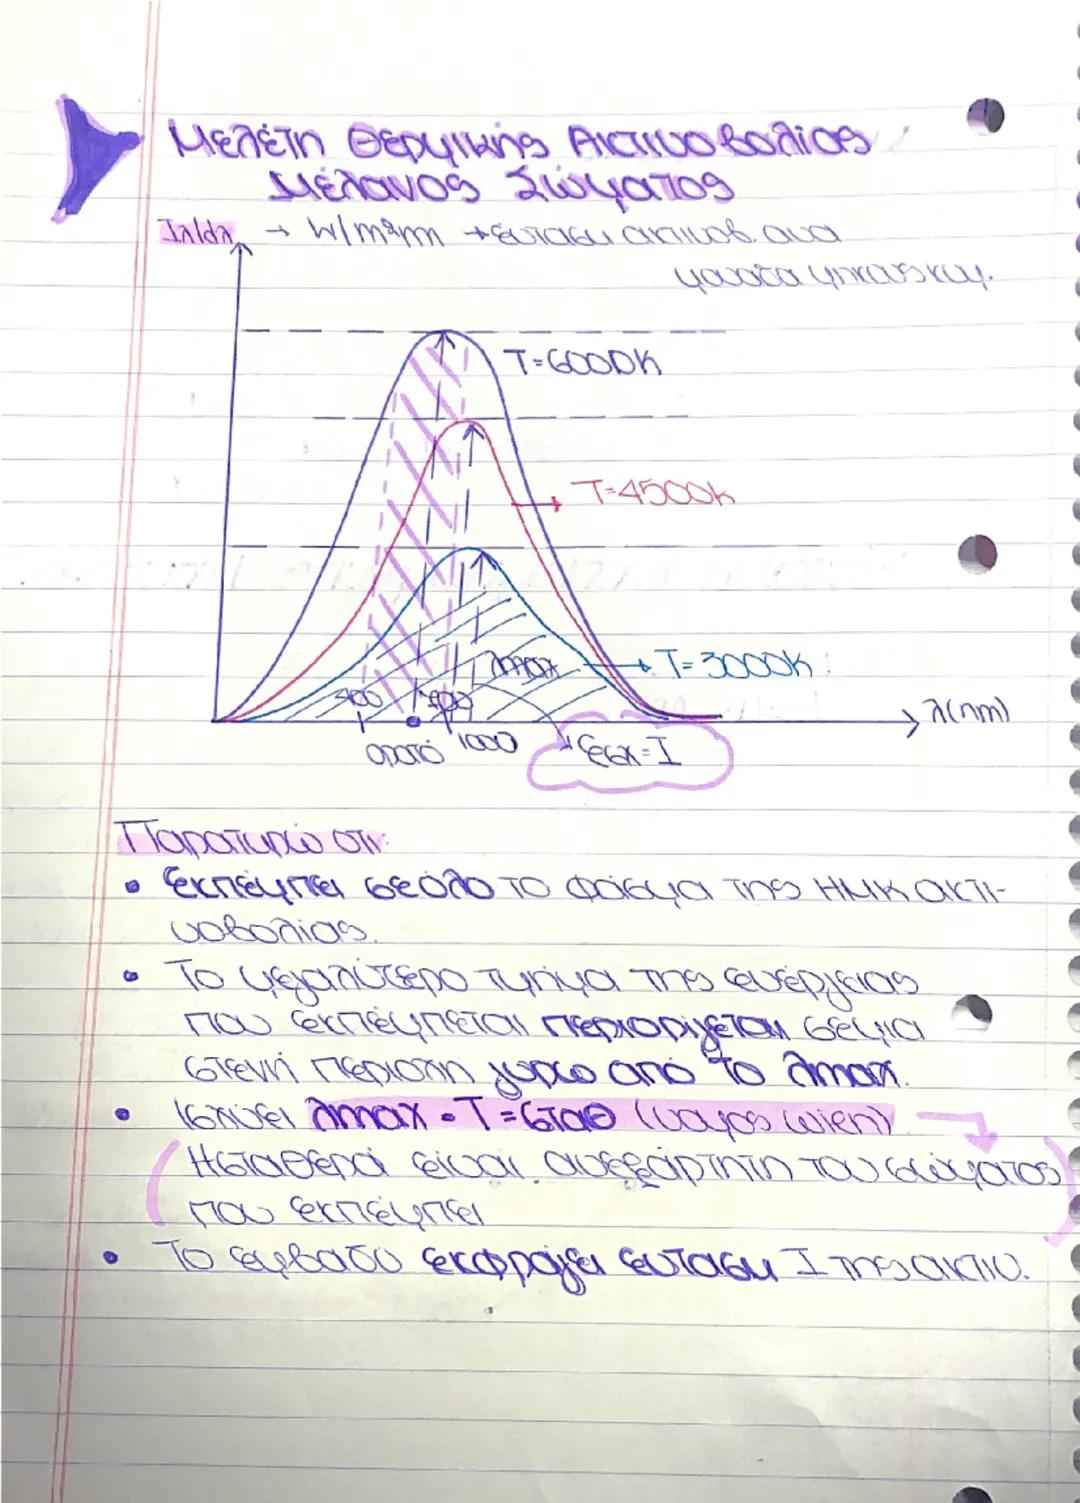 Μελέτη Θερμικής Ακτινοβολίας
Μέλανος Σώματος
Iλ/dλ → W/m²m → ένταση ακτινοβ. ανα
μονάδα μήκους κυμ.
T=6000K
T=4500K
T=3000K
λmax
400 700
λ(nm)
ορατό 1000
Εσκ=I
Παρατηρώ ότι:
• Εκπέμπει σε όλο το φάσμα της ΗΜΚ ακτι-
νοβολίας.
• Το μεγαλύτερο τμήμα της ενέργειας
που εκπέμπεται περιορίζεται σε μια
στενή περιοχή γύρω από το λmax.
• Ισχύει λmax • T = σταθ (νόμος Wien)
(Η σταθερά είναι ανεξάρτητη του σώματος
που εκπέμπει)
• Το εμβαδό εκφράζει ένταση I της ακτιν.